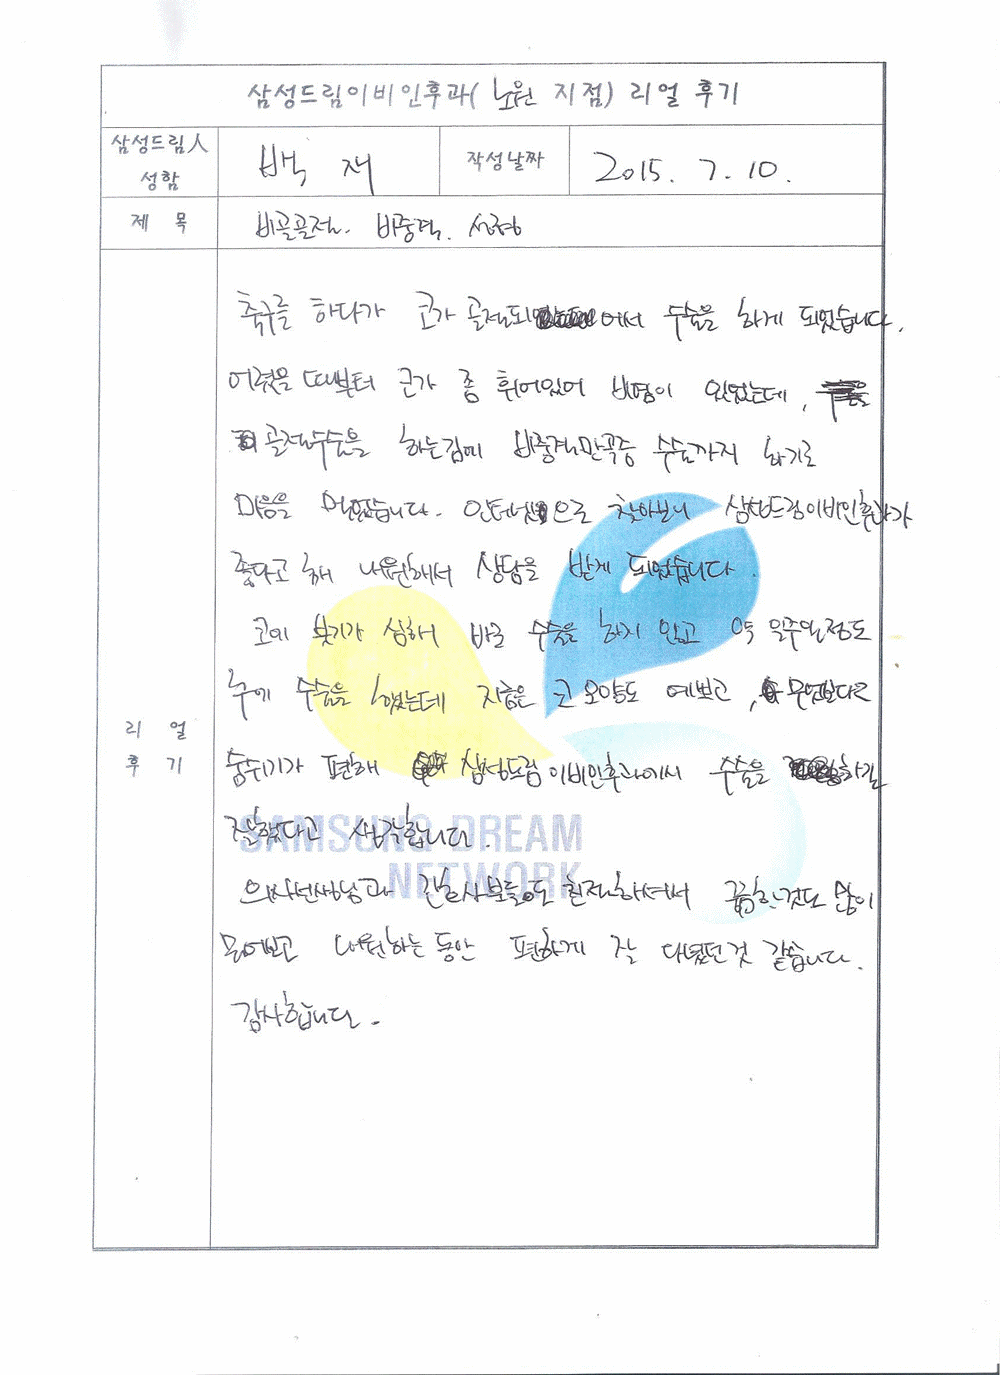 삼성드림이비인후과( 노원 지점) 리얼 후기
삼성드림人 성함
백 재
작성날짜
2015. 7. 10.
제 목
비골골절. 비중격. 성형
리 얼 후 기
축구를 하다가 코가 골절되어서 수술을 하게 되었습니다.
어렸을 때부터 코가 좀 휘어있어 비염이 있었는데,
골절수술을 하는김에 비중격만곡증 수술까지 하기로
마음을 먹었습니다. 인터넷으로 찾아보니 삼성드림이비인후과가
좋다고 해 내원해서 상담을 받게 되었습니다.
코에 붓기가 심해서 바로 수술을 하지 않고 약 일주일정도
후에 수술을 했는데 지금은 코 모양도 예쁘고, 무엇보다도
숨쉬기가 편해 삼성드림이비인후과에서 수술을 하길
잘했다고 생각합니다.
의사선생님과 간호사분들도 친절하셔서 궁금한것도 많이
물어보고 내원하는 동안 편하게 잘 다녔던것 같습니다.
감사합니다.
SAMSUNG DREAM
NETWORK